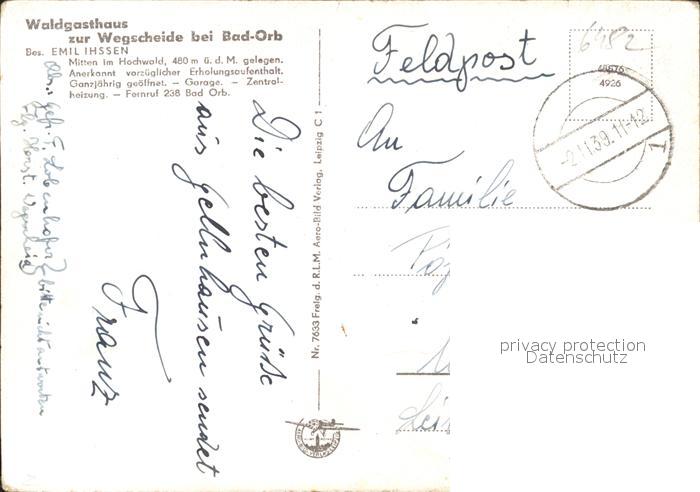 Waldgasthaus
zur Wegscheide bei Bad-Orb
Bes. EMIL IHSSEN
Mitten im Hochwald, 480 m ü. d. M. gelegen.
Anerkannt vorzüglicher Erholungsaufenthalt.
Ganzjährig geöffnet. – Garage. – Zentral-
heizung. – Fernruf 238 Bad Orb.
Die besten Grüße
aus Gellnhausen sendet
Franz
bitte nicht antworten
Nr. 7633 Freig. d. R.L.M. Aero-Bild Verlag, Leipzig C 1
Feldpost
6482
48876
4926
-2.11.39.11-12
1
An
Familie
privacy protection
Datenschutz